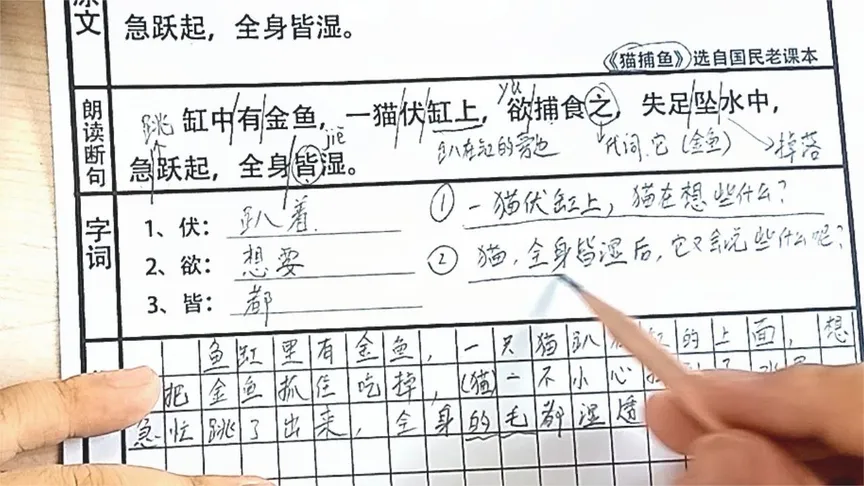 原文
急跃起，全身皆湿。
《猫捕鱼》选自国民老课本
朗读断句
yú
跳 缸中/有/金鱼，一猫/伏/缸上，欲/捕食之，失足/坠/水中，
jiē
趴在缸的旁边 代词.它(金鱼) 掉落
急/跃起，全身/皆湿。
字词
1、伏：趴着
① 一猫伏缸上，猫在想些什么？
2、欲：想要
② 猫，全身皆湿后，它又会说些什么呢？
3、皆：都
鱼缸里有金鱼，一只猫趴 的上面，想
把金鱼抓住吃掉，(猫)一不小心
急忙跳了出来，全身的毛都湿透